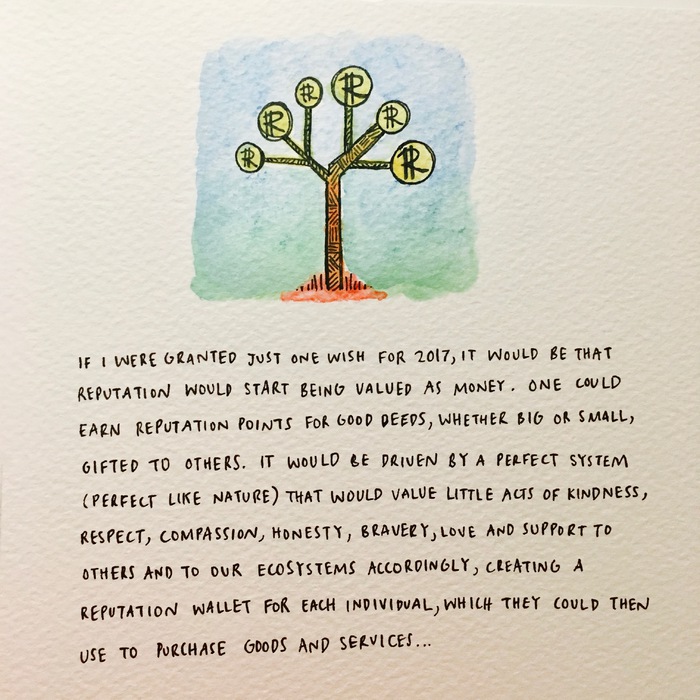 R
R
R
R
R
R
IF I WERE GRANTED JUST ONE WISH FOR 2017, IT WOULD BE THAT
REPUTATION WOULD START BEING VALUED AS MONEY. ONE COULD
EARN REPUTATION POINTS FOR GOOD DEEDS, WHETHER BIG OR SMALL,
GIFTED TO OTHERS. IT WOULD BE DRIVEN BY A PERFECT SYSTEM
(PERFECT LIKE NATURE) THAT WOULD VALUE LITTLE ACTS OF KINDNESS,
RESPECT, COMPASSION, HONESTY, BRAVERY, LOVE AND SUPPORT TO
OTHERS AND TO OUR ECOSYSTEMS ACCORDINGLY, CREATING A
REPUTATION WALLET FOR EACH INDIVIDUAL, WHICH THEY COULD THEN
USE TO PURCHASE GOODS AND SERVICES...